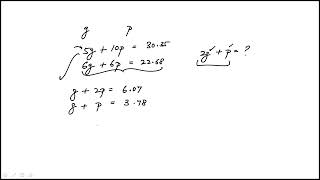 g p
5g + 10p = 30.35
6g + 6p = 22.68
2g + p = ?
g + 2p = 6.07
g + p = 3.78